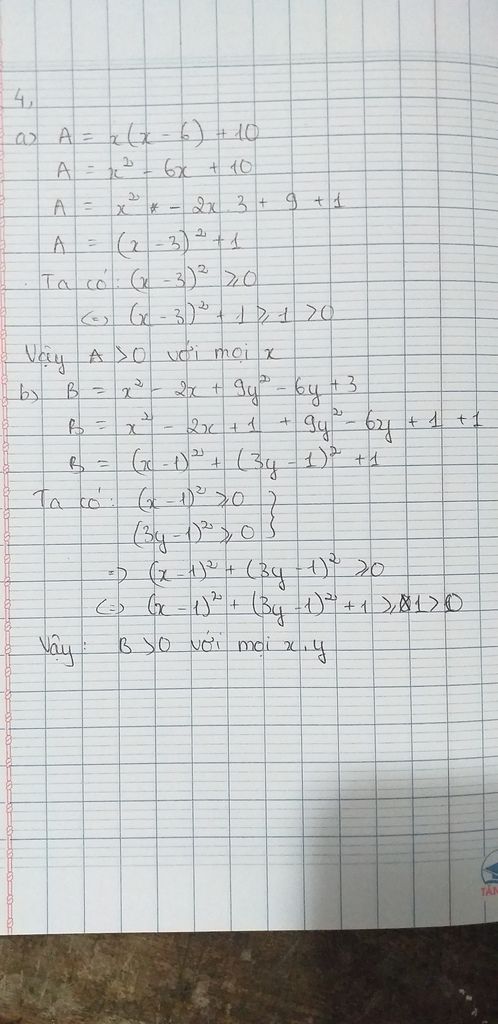 4,
a) A = x(x - 6) + 10
A = x² - 6x + 10
A = x² - 2x.3 + 9 + 1
A = (x - 3)² + 1
Ta có: (x - 3)² ≥ 0
<=> (x - 3)² + 1 ≥ 1 > 0
Vậy A > 0 với mọi x
b) B = x² - 2x + 9y² - 6y + 3
B = x² - 2x + 1 + 9y² - 6y + 1 + 1
B = (x - 1)² + (3y - 1)² + 1
Ta có: (x - 1)² ≥ 0 }
(3y - 1)² ≥ 0 }
=> (x - 1)² + (3y - 1)² ≥ 0
<=> (x - 1)² + (3y - 1)² + 1 ≥ 1 > 0
Vậy: B > 0 với mọi x, y